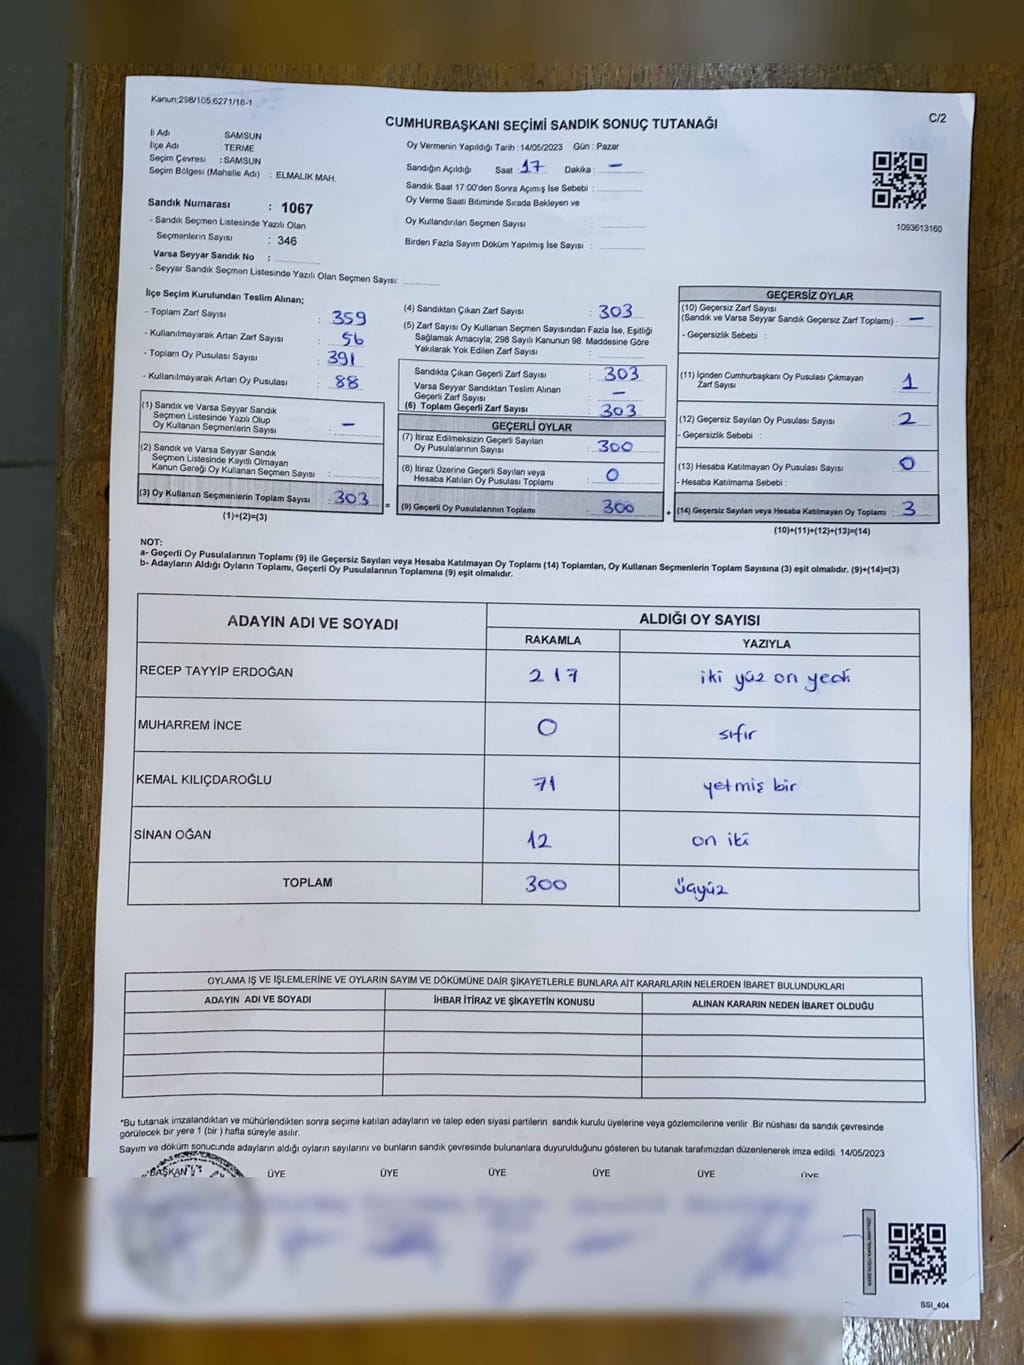 Kanun;298/105,6271/18-1
C/2
CUMHURBAŞKANI SEÇİMİ SANDIK SONUÇ TUTANAĞI
İli Adı : SAMSUN
İlçe Adı : TERME
Seçim Çevresi : SAMSUN
Seçim Bölgesi (Mahalle Adı) : ELMALIK MAH.
Oy Vermenin Yapıldığı Tarih :14/05/2023 Gün : Pazar
Sandığın Açıldığı Saat 17 Dakika : —
Sandık Saat 17:00'den Sonra Açımış İse Sebebi :
Oy Verme Saati Bitiminde Sırada Bekleyen ve
Oy Kullandırılan Seçmen Sayısı :
Birden Fazla Sayım Döküm Yapılmış İse Sayısı :
1093613160
Sandık Numarası : 1067
- Sandık Seçmen Listesinde Yazılı Olan
Seçmenlerin Sayısı : 346
Varsa Seyyar Sandık No :
- Seyyar Sandık Seçmen Listesinde Yazılı Olan Seçmen Sayısı:
İlçe Seçim Kurulundan Teslim Alınan;
- Toplam Zarf Sayısı : 359
- Kullanılmayarak Artan Zarf Sayısı : 56
- Toplam Oy Pusulası Sayısı : 391
- Kullanılmayarak Artan Oy Pusulası : 88
(1) Sandık ve Varsa Seyyar Sandık
Seçmen Listesinde Yazılı Olup
Oy Kullanan Seçmenlerin Sayısı : —
(2) Sandık ve Varsa Seyyar Sandık
Seçmen Listesinde Kayıtlı Olmayan
Kanun Gereği Oy Kullanan Seçmen Sayısı :
(3) Oy Kullanan Seçmenlerin Toplam Sayısı : 303
(1)+(2)=(3)
=
(4) Sandıktan Çıkan Zarf Sayısı : 303
(5) Zarf Sayısı Oy Kullanan Seçmen Sayısından Fazla İse, Eşitliği
Sağlamak Amacıyla; 298 Sayılı Kanunun 98. Maddesine Göre
Yakılarak Yok Edilen Zarf Sayısı :
Sandıkta Çıkan Geçerli Zarf Sayısı : 303
Varsa Seyyar Sandıktan Teslim Alınan
Geçerli Zarf Sayısı : —
(6) Toplam Geçerli Zarf Sayısı : 303
GEÇERLİ OYLAR
(7) İtiraz Edilmeksizin Geçerli Sayılan
Oy Pusulalarının Sayısı : 300
(8) İtiraz Üzerine Geçerli Sayılan veya
Hesaba Katılan Oy Pusulası Toplamı : 0
(9) Geçerli Oy Pusulalarının Toplamı : 300
+
GEÇERSİZ OYLAR
(10) Geçersiz Zarf Sayısı
(Sandık ve Varsa Seyyar Sandık Geçersiz Zarf Toplamı) : —
- Geçersizlik Sebebi :
(11) İçinden Cumhurbaşkanı Oy Pusulası Çıkmayan
Zarf Sayısı : 1
(12) Geçersiz Sayılan Oy Pusulası Sayısı : 2
- Geçersizlik Sebebi :
(13) Hesaba Katılmayan Oy Pusulası Sayısı : 0
- Hesaba Katılmama Sebebi :
(14) Geçersiz Sayılan veya Hesaba Katılmayan Oy Toplamı : 3
(10)+(11)+(12)+(13)=(14)
NOT:
a- Geçerli Oy Pusulalarının Toplamı (9) ile Geçersiz Sayılan veya Hesaba Katılmayan Oy Toplamı (14) Toplamları, Oy Kullanan Seçmenlerin Toplam Sayısına (3) eşit olmalıdır. (9)+(14)=(3)
b- Adayların Aldığı Oyların Toplamı, Geçerli Oy Pusulalarının Toplamına (9) eşit olmalıdır.
ADAYIN ADI VE SOYADI
ALDIĞI OY SAYISI
RAKAMLA YAZIYLA
RECEP TAYYİP ERDOĞAN 217 iki yüz on yedi
MUHARREM İNCE 0 sıfır
KEMAL KILIÇDAROĞLU 71 yetmiş bir
SİNAN OĞAN 12 on iki
TOPLAM 300 üçyüz
OYLAMA İŞ VE İŞLEMLERİNE VE OYLARIN SAYIM VE DÖKÜMÜNE DAİR ŞİKAYETLERLE BUNLARA AİT KARARLARIN NELERDEN İBARET BULUNDUKLARI
ADAYIN ADI VE SOYADI İHBAR İTİRAZ VE ŞİKAYETİN KONUSU ALINAN KARARIN NEDEN İBARET OLDUĞU
*Bu tutanak imzalandıktan ve mühürlendikten sonra seçime katılan adayların ve talep eden siyasi partilerin sandık kurulu üyelerine veya gözlemcilerine verilir .Bir nüshası da sandık çevresinde
görülecek bir yere 1 (bir ) hafta süreyle asılır.
Sayım ve döküm sonucunda adayların aldığı oyların sayılarını ve bunların sandık çevresinde bulunanlara duyurulduğunu gösteren bu tutanak tarafımızdan düzenlenerek imza edildi. 14/05/2023
BAŞKAN ÜYE ÜYE ÜYE ÜYE ÜYE ÜYE
SSI_404